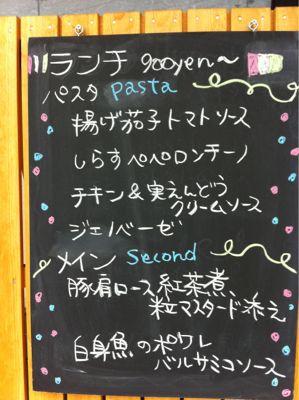 ランチ 900yen〜
パスタ pasta
揚げ茄子トマトソース
しらすペペロンチーノ
チキン&実えんどう
クリームソース
ジェノベーゼ
メイン Second
豚肩ロース紅茶煮
粒マスタード添え
白身魚のポワレ
バルサミコソース